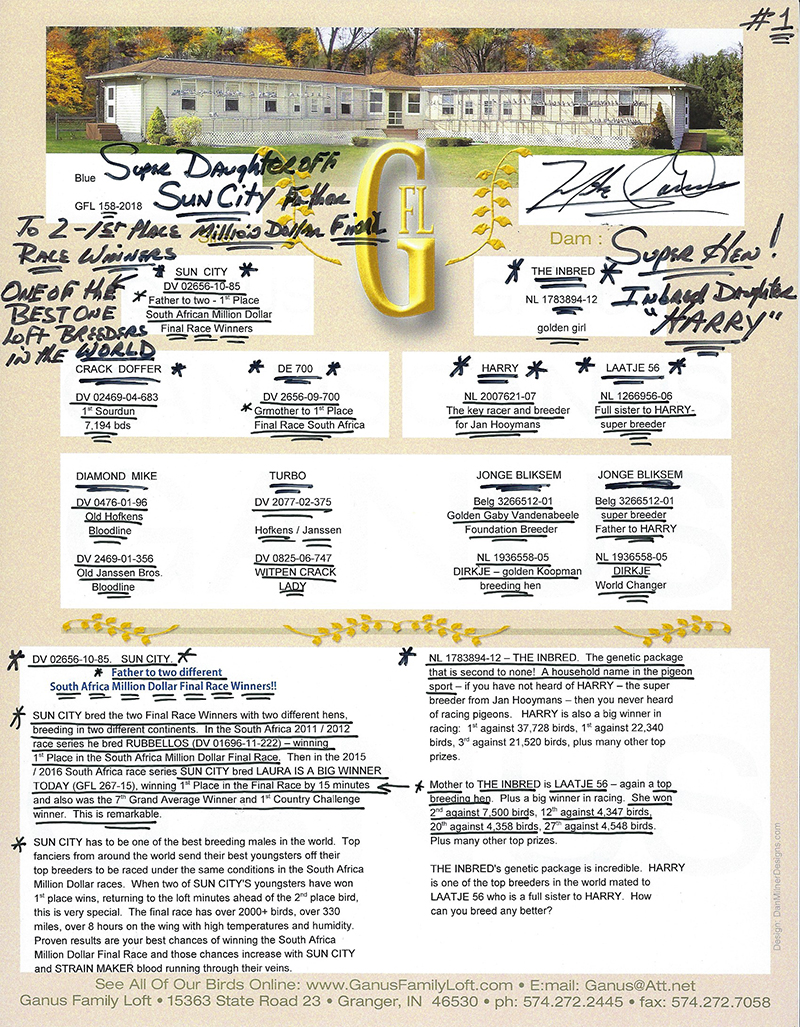 #1
Blue
GFL 158-2018
Super Daughter off
Sun City Father
To 2 - 1st Place Million Dollar Final
Race Winners
One of the
Best One
Loft Breeders
in the World
GFL
Dam :
Super Hen!
Inbred Daughter
"Harry"
SUN CITY
DV 02656-10-85
Father to two - 1st Place
South African Million Dollar
Final Race Winners
THE INBRED
NL 1783894-12
golden girl
CRACK DOFFER
DV 02469-04-683
1st Sourdun
7,194 bds
DE 700
DV 2656-09-700
Grmother to 1st Place
Final Race South Africa
HARRY
NL 2007621-07
The key racer and breeder
for Jan Hooymans
LAATJE 56
NL 1266956-06
Full sister to HARRY-
super breeder
DIAMOND MIKE
DV 0476-01-96
Old Hofkens
Bloodline
DV 2469-01-356
Old Janssen Bros.
Bloodline
TURBO
DV 2077-02-375
Hofkens / Janssen
DV 0825-06-747
WITPEN CRACK
LADY
JONGE BLIKSEM
Belg 3266512-01
Golden Gaby Vandenabeele
Foundation Breeder
NL 1936558-05
DIRKJE – golden Koopman
breeding hen
JONGE BLIKSEM
Belg 3266512-01
super breeder
Father to HARRY
NL 1936558-05
DIRKJE
World Changer
DV 02656-10-85. SUN CITY.
Father to two different
South Africa Million Dollar Final Race Winners!!
SUN CITY bred the two Final Race Winners with two different hens,
breeding in two different continents. In the South Africa 2011 / 2012
race series he bred RUBBELLOS (DV 01696-11-222) – winning
1st Place in the South Africa Million Dollar Final Race. Then in the 2015
/ 2016 South Africa race series SUN CITY bred LAURA IS A BIG WINNER
TODAY (GFL 267-15), winning 1st Place in the Final Race by 15 minutes
and also was the 7th Grand Average Winner and 1st Country Challenge
winner. This is remarkable.
SUN CITY has to be one of the best breeding males in the world. Top
fanciers from around the world send their best youngsters off their
top breeders to be raced under the same conditions in the South Africa
Million Dollar races. When two of SUN CITY'S youngsters have won
1st place wins, returning to the loft minutes ahead of the 2nd place bird,
this is very special. The final race has over 2000+ birds, over 330
miles, over 8 hours on the wing with high temperatures and humidity.
Proven results are your best chances of winning the South Africa
Million Dollar Final Race and those chances increase with SUN CITY
and STRAIN MAKER blood running through their veins.
NL 1783894-12 – THE INBRED. The genetic package
that is second to none! A household name in the pigeon
sport – if you have not heard of HARRY – the super
breeder from Jan Hooymans – then you never heard
of racing pigeons. HARRY is also a big winner in
racing: 1st against 37,728 birds, 1st against 22,340
birds, 3rd against 21,520 birds, plus many other top
prizes.
Mother to THE INBRED is LAATJE 56 – again a top
breeding hen. Plus a big winner in racing. She won
2nd against 7,500 birds, 12th against 4,347 birds,
20th against 4,358 birds, 27th against 4,548 birds.
Plus many other top prizes.
THE INBRED's genetic package is incredible. HARRY
is one of the top breeders in the world mated to
LAATJE 56 who is a full sister to HARRY. How
can you breed any better?
Design: DanMilnerDesigns.com
See All Of Our Birds Online: www.GanusFamilyLoft.com • E:mail: Ganus@Att.net
Ganus Family Loft • 15363 State Road 23 • Granger, IN 46530 • ph: 574.272.2445 • fax: 574.272.7058